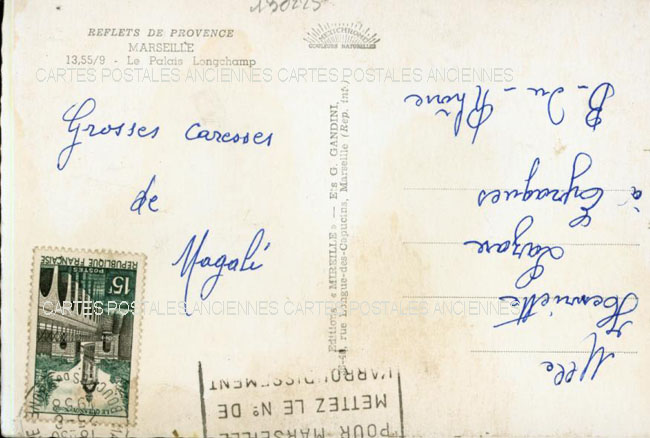 130225
REFLETS DE PROVENCE
MARSEILLE
13,55/9 - Le Palais Longchamp
MEXICHROME
COULEURS NATURELLES
CARTES POSTALES ANCIENNES CARTES POSTALES ANCIENNES
Grosses caresses
de
Magali
Editions « MIREILLE » — Ets G. GANDINI,
rue Longue-des-Capucins, Marseille (Rep. int.)
Mlle
Henriette
Lazare
à Eyragues
B-du-Rhône
15F
POSTES
REPUBLIQUE FRANÇAISE
CARTES POSTALES ANCIENNES CARTES POSTALES ANCIENNES
POUR MARSEILLE
METTEZ LE N° DE
L'ARRONDISSEMENT